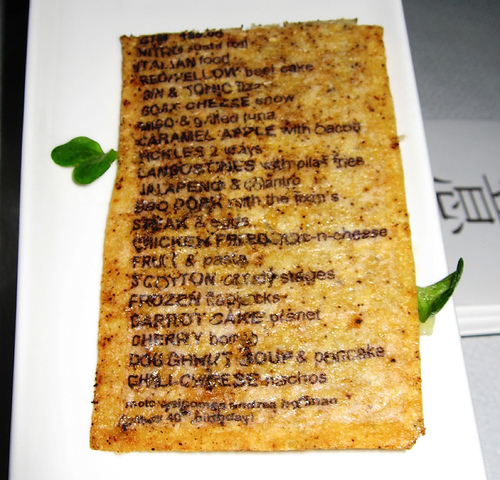 NITRO sushi roll
ITALIAN food
RED/YELLOW beet cake
GIN & TONIC fizz
GOAT CHEESE snow
MISO & grilled tuna
CARAMEL APPLE with bacon
PICKLES 2 ways
LANGOSTINES with pilaf fries
JALAPENO & cilantro
BBQ PORK with the fixin's
STEAK & eggs
CHICKEN FRIED mac-n-cheese
FRUIT & pasta
candy stages
FROZEN flapjacks
CARROT CAKE planet
CHERRY bomb
DOUGHNUT SOUP & pancake
CHILI-CHEESE nachos
moto welcomes andrea
40th birthday!